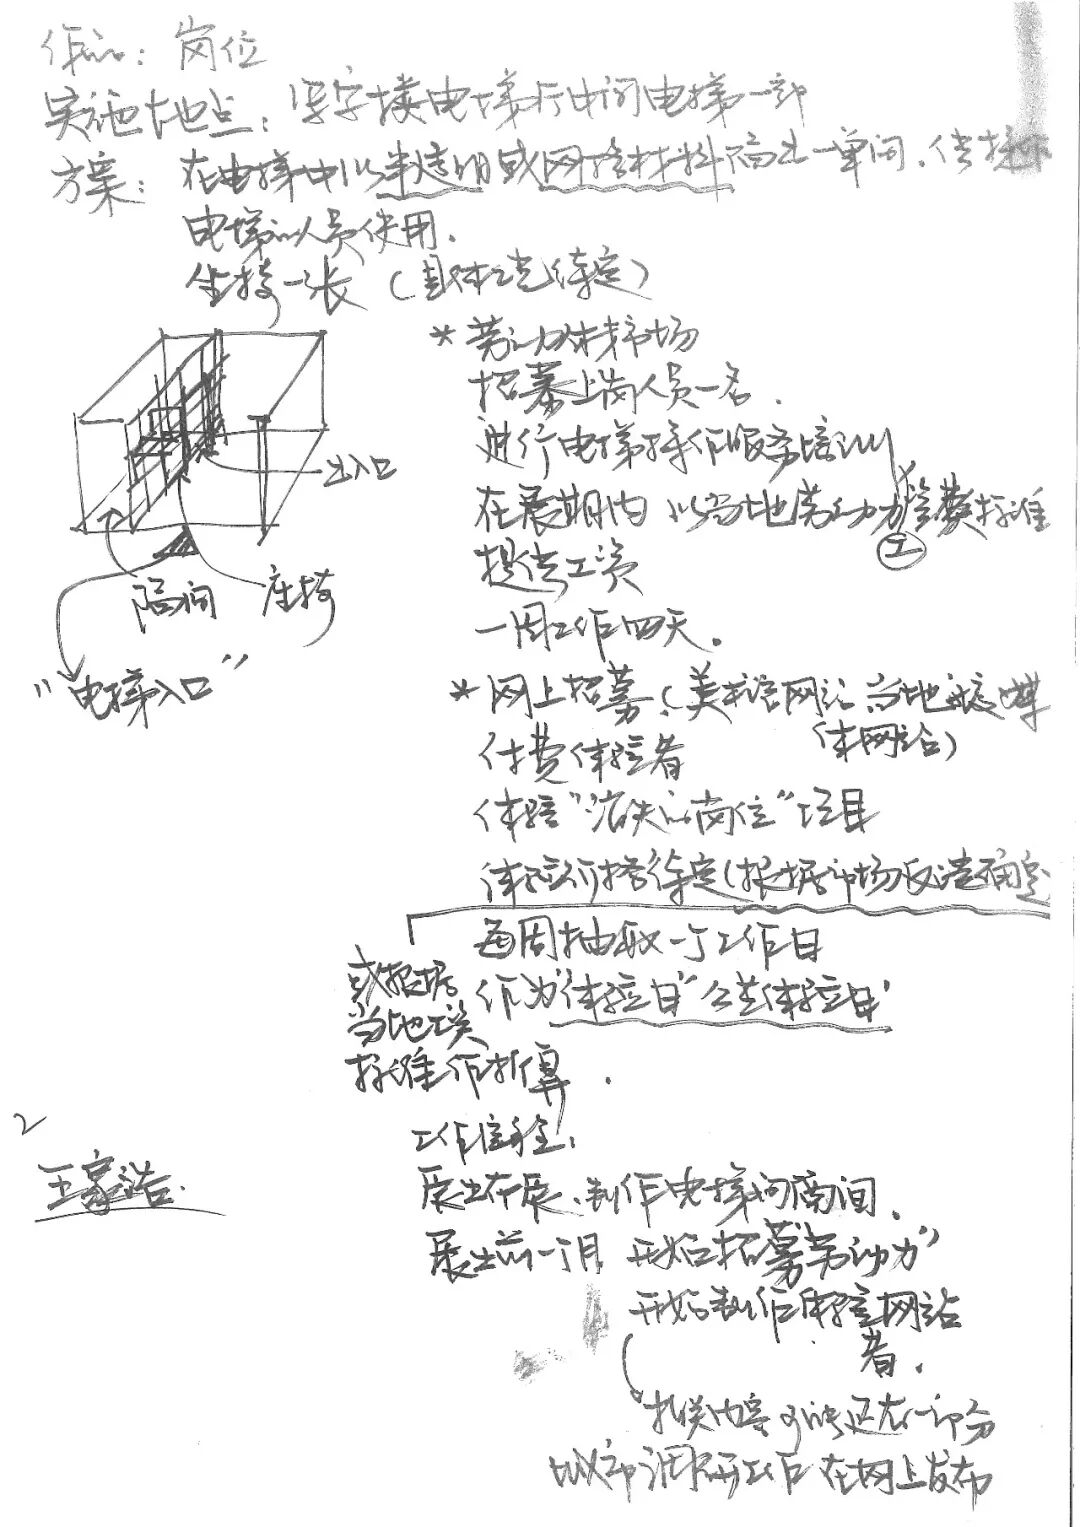 作品：岗位
实施地点：写字楼电梯厅中间电梯一部
方案：在电梯中以半透明或网格材料隔出一单间，供操作
电梯的人员使用．
坐椅一张（具体工艺待定）
* 劳动力人才市场
招募上岗人员一名．
进行电梯操作服务培训
在展期内 以当地劳动力 资费标准
工
提供工资
一周工作四天．
出入口
隔间
座椅
“电梯入口”
* 网上招募，（美术馆网站 当地 媒
体网站）
付费体验者
体验“消失的岗位”项目
体验价格待定（根据市场反馈确定
每周抽取一个工作日
作为“体验日”公益体验日’
或根据
当地工资
标准作折算．
2
王家浩．
工作
展出布展、制作电梯间隔间．
展出前一个月 开始招募“劳动力”
开始制作体验网站
者．
相关内容 可能还有一部分
城市调研工作 在网上发布